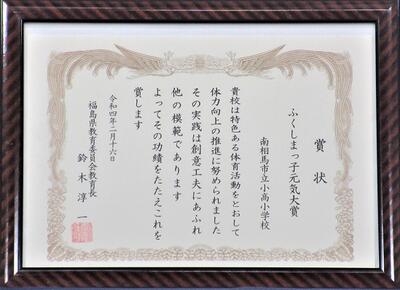 賞状
ふくしまっ子元気大賞
南相馬市立小高小学校
貴校は特色ある体育活動をとおして
体力向上の推進に努められました
その実践は創意工夫にあふれ
他の模範であります
よってその功績をたたえこれを
賞します
令和四年二月十六日
福島県教育委員会教育長
鈴木淳一